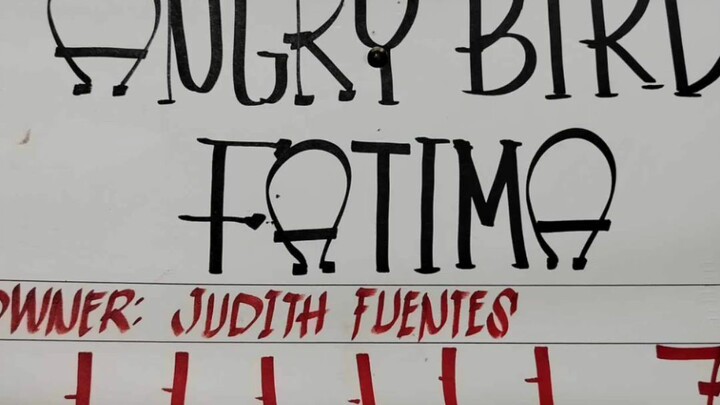 ANGRY BIRD
FATIMA
OWNER: JUDITH FUENTES